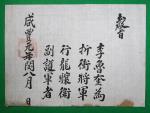 教旨
李魯奎為
折衝將軍
行龍驤衛
副護軍者
咸豐元年閏八月 日